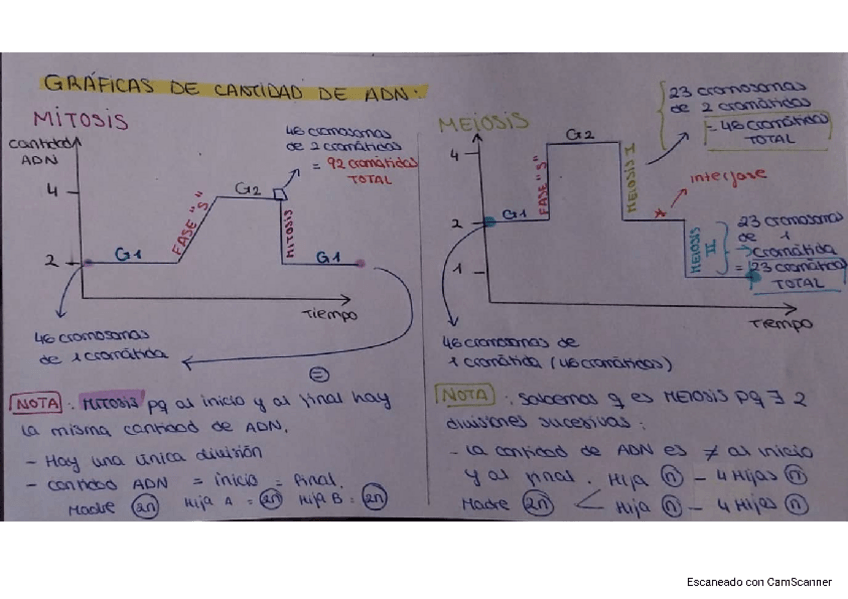 GRÁFICAS DE CANTIDAD DE ADN:
MITOSIS
cantidad
ADN
4
2
G1
FASE "S"
G2
MITOSIS
G1
Tiempo
46 cromosomas
de 2 cromátidas
= 92 cromátidas
TOTAL
46 cromosomas
de 1 cromátida
=
NOTA: MITOSIS pq al inicio y al final hay
la misma cantidad de ADN.
- Hay una única división
- cantidad ADN = inicio = final.
Madre 2n Hija A = 2n Hija B = 2n
MEIOSIS
4
2
1
G1
FASE "S"
G2
MEIOSIS I
interfase
MEIOSIS
II
Tiempo
23 cromosomas
de 2 cromátidas
= 46 cromátidas
TOTAL
23 cromosomas
de 1
cromátida
= 23 cromátidas
TOTAL
46 cromosomas de
1 cromátida (46 cromátidas)
NOTA: Sabemos q es MEIOSIS pq ∃ 2
divisiones sucesivas:
- La cantidad de ADN es ≠ al inicio
y al final. Hija n - 4 Hijas n
Madre 2n < Hija n - 4 Hijas n
Escaneado con CamScanner